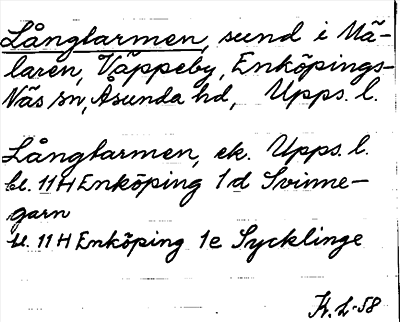 Långtarmen, sund i Mä-
laren, Väppeby, Enköpings-
Näs sn, Åsunda hd, Upps. l.
Långtarmen, ek. Upps. l.
bl. 11H Enköping 1d Svinne-
garn
bl. 11H Enköping 1e Sycklinge
K. L-58